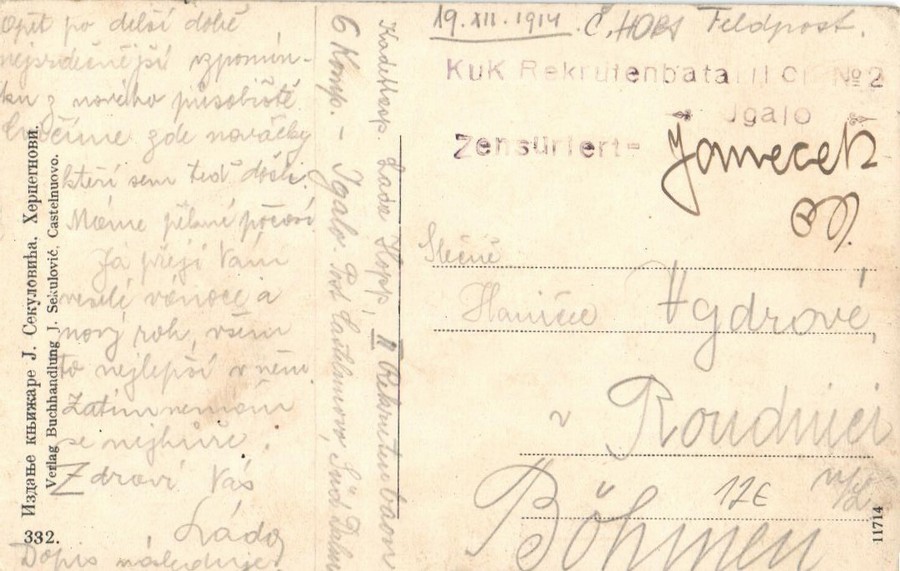 Opět po delší době
nejsrdečnější vzpomín-
ku z nového působiště.
Cvičíme zde nováčky
kteří sem teď došli.
Máme pěkné počasí
Já přeji Vám
veselé vánoce a
nový rok, všem
to nejlepší v něm.
Zatím nemám
se nejhůře.
Zdraví Vás
Láďa
Dopis následuje
Издање књижаре Ј. Секуловића, Херцегнови.
Verlag Buchhandlung J. Sekulović, Castelnuovo.
332.
Kadettasp. Lada Hopp, II Rekrutenbaon
6 Komp. – Igalo. Post Castelnuovo, Süd Dalm
19.XII.1914. Feldpost.
KuK Rekrutenbataillon №2
Igalo
Zensuriert=
Slečně
Haničce Vydrové,
v Roudnici
Böhmen
12€
11714